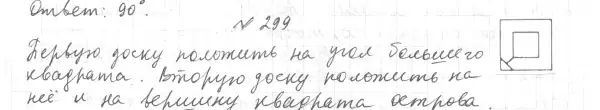 Ответ: 90°.
№ 299
Первую доску положить на угол большего
квадрата. Вторую доску положить на
неё и на вершину квадрата острова.